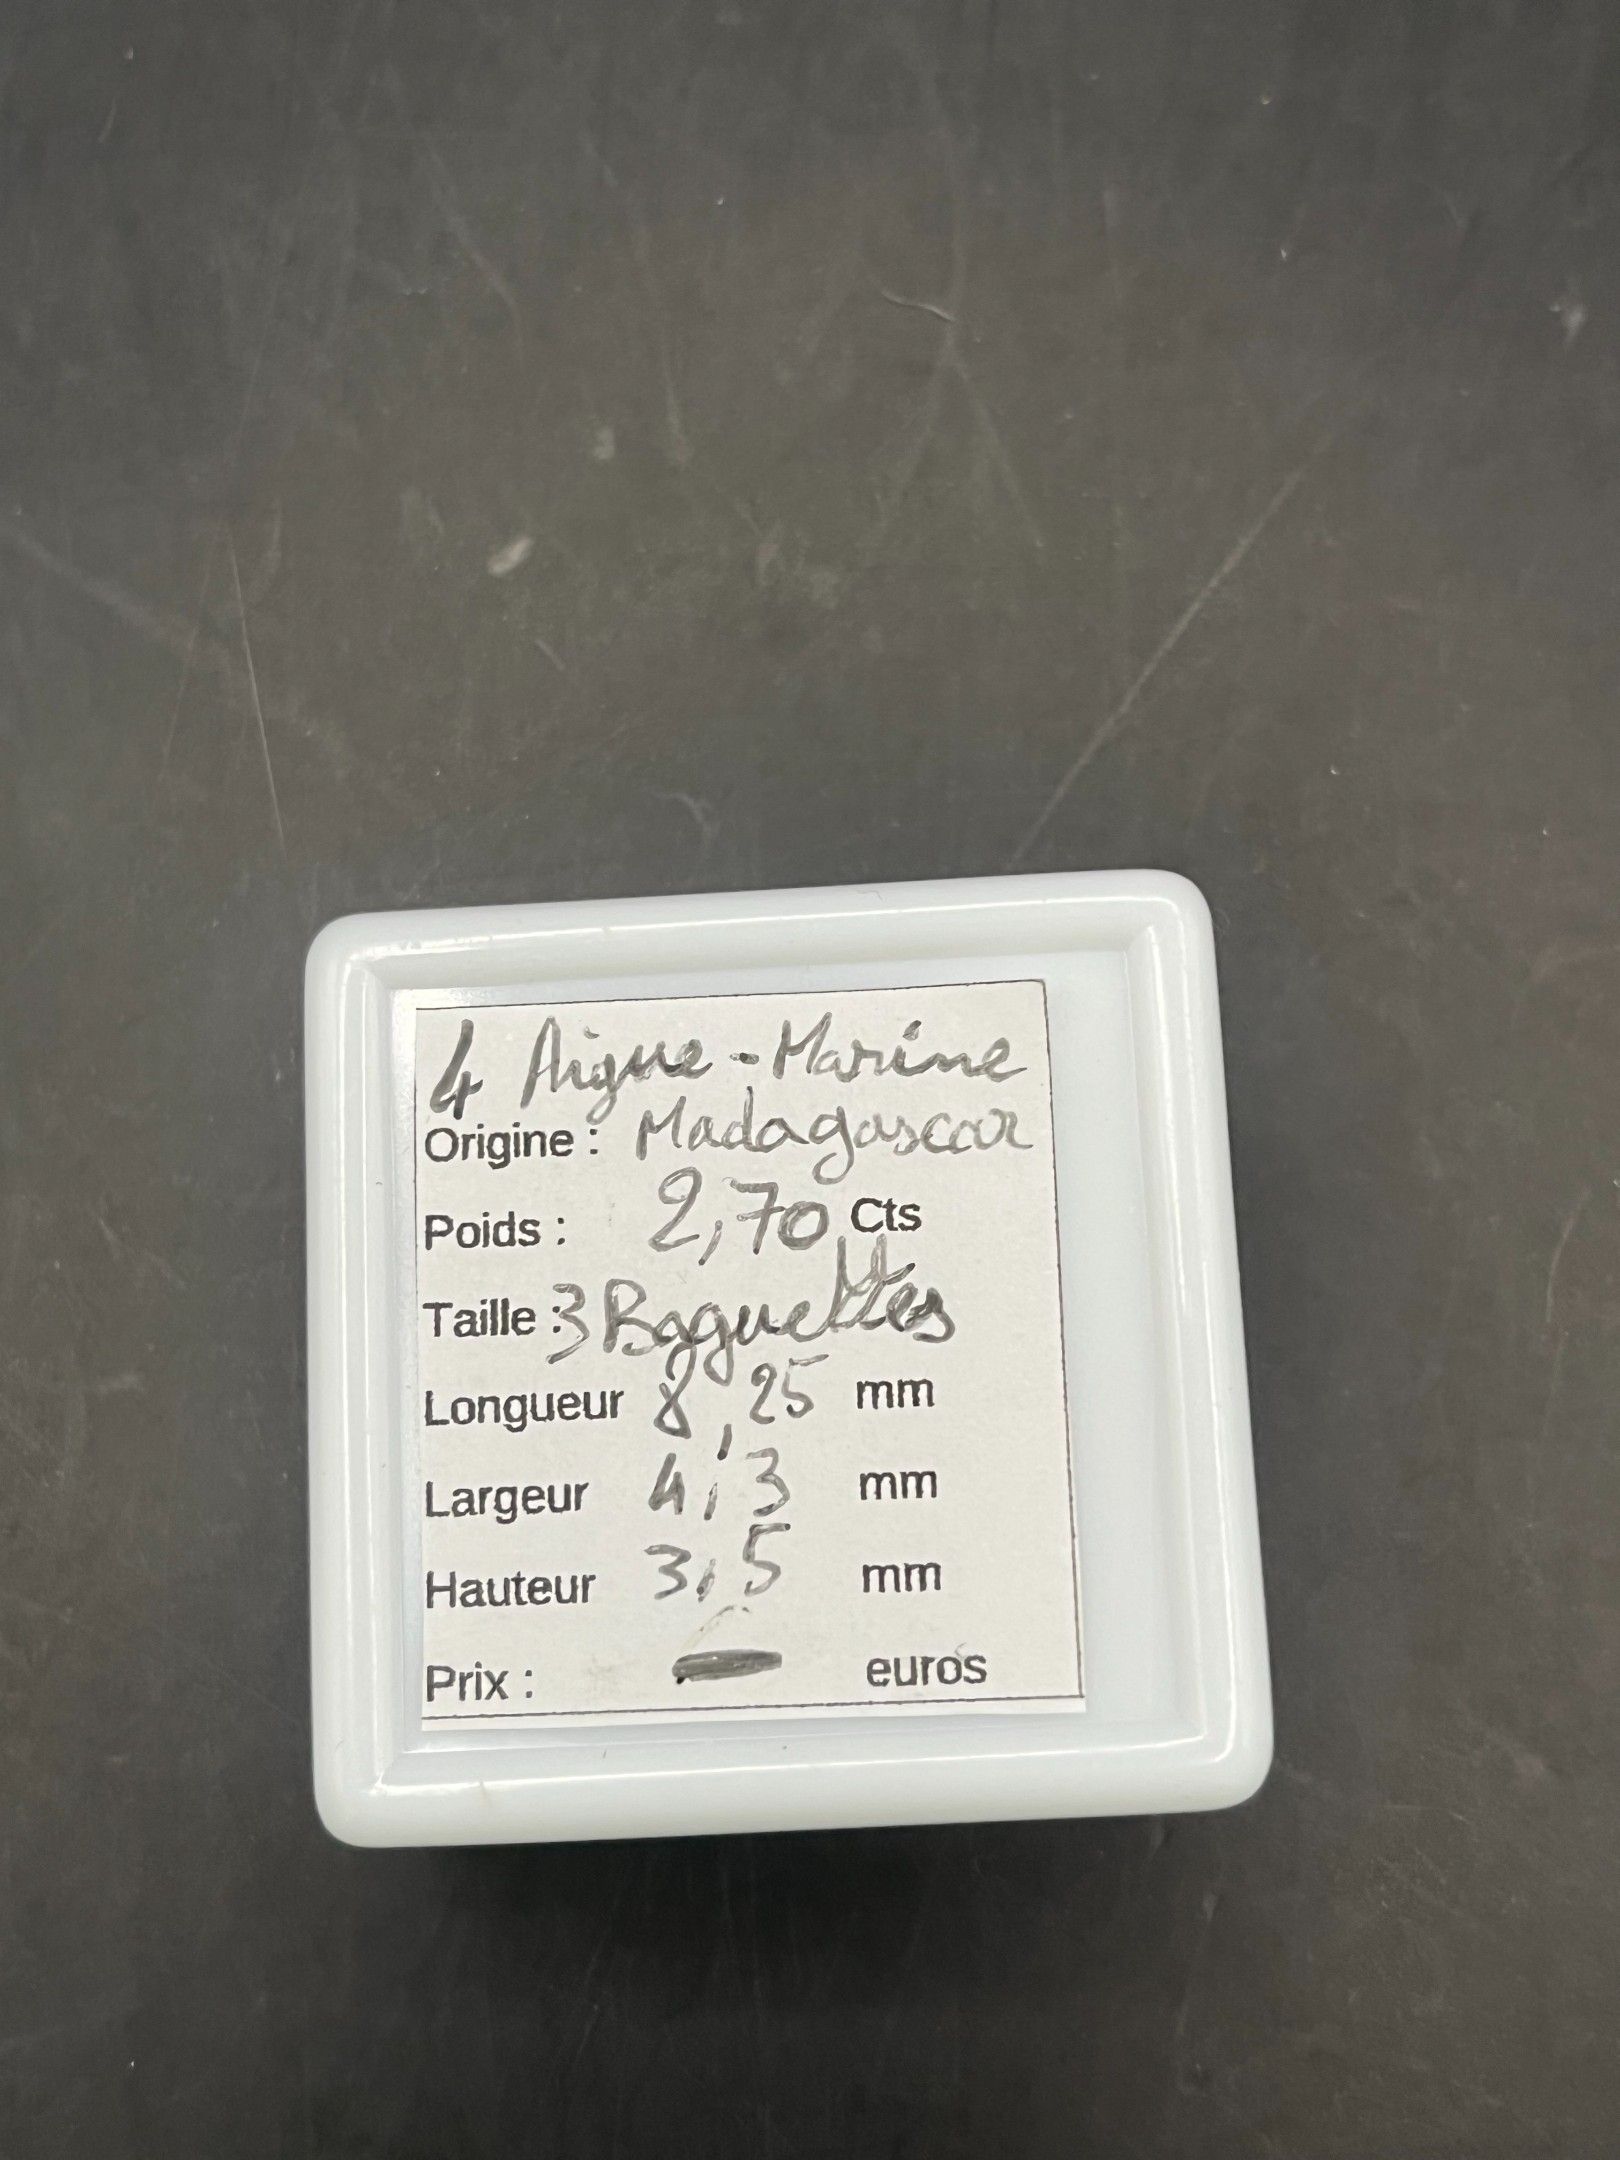 4 Aigue-Marine
Origine : Madagascar
Poids : 2,70 Cts
Taille : 3 Baguettes
Longueur 8,25 mm
Largeur 4,3 mm
Hauteur 3,5 mm
Prix : euros